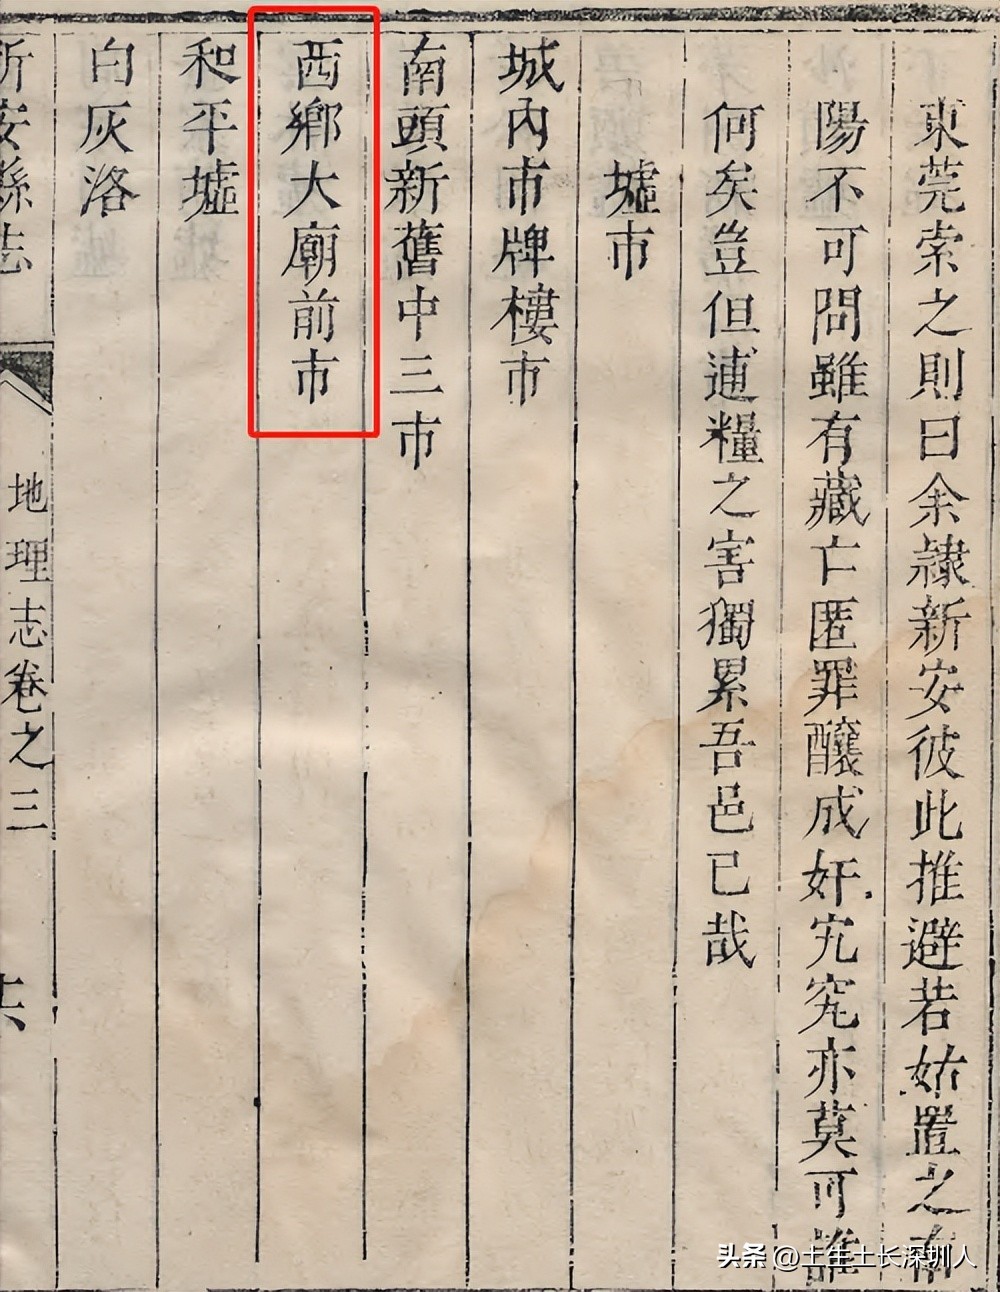 東莞索之則曰余隷新安彼此推避若姑置之南
陽不可問雖有藏亡匿罪釀成奸宄究亦莫可誰
何矣豈但逋糧之害獨累吾邑已哉
墟市
城內市牌樓市
南頭新舊中三市
西鄉大廟前市
和平墟
白灰洛
新安縣志
地理志卷之三
头条 @土生土长深圳人